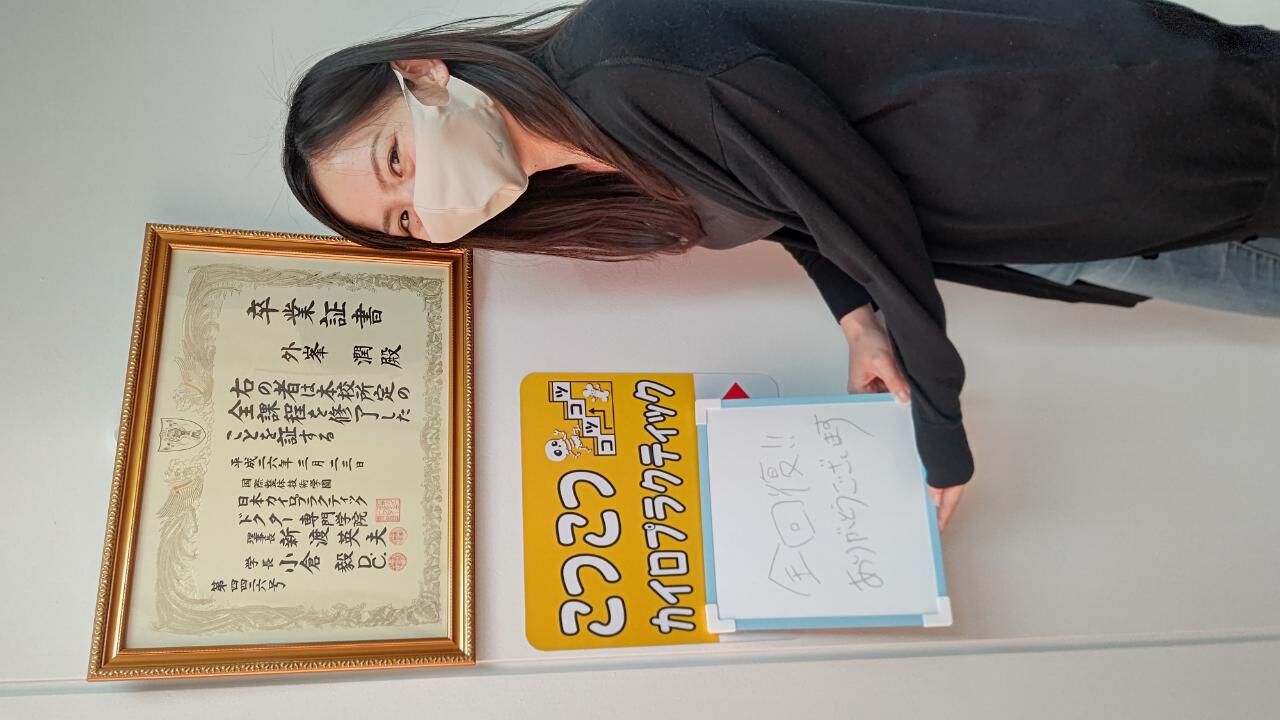 卒業証書
外峯 潤殿
右の者は本校所定の
全課程を修了した
ことを証する
平成二六年三月二三日
国際整体技術学園
日本カイロプラクティック
ドクター専門学院
理事長 新渡英夫
学長 小倉 毅D.C.
第四四二六号
こつこつ
コツコツ
カイロプラクティック
全回復!!
ありがとうございます